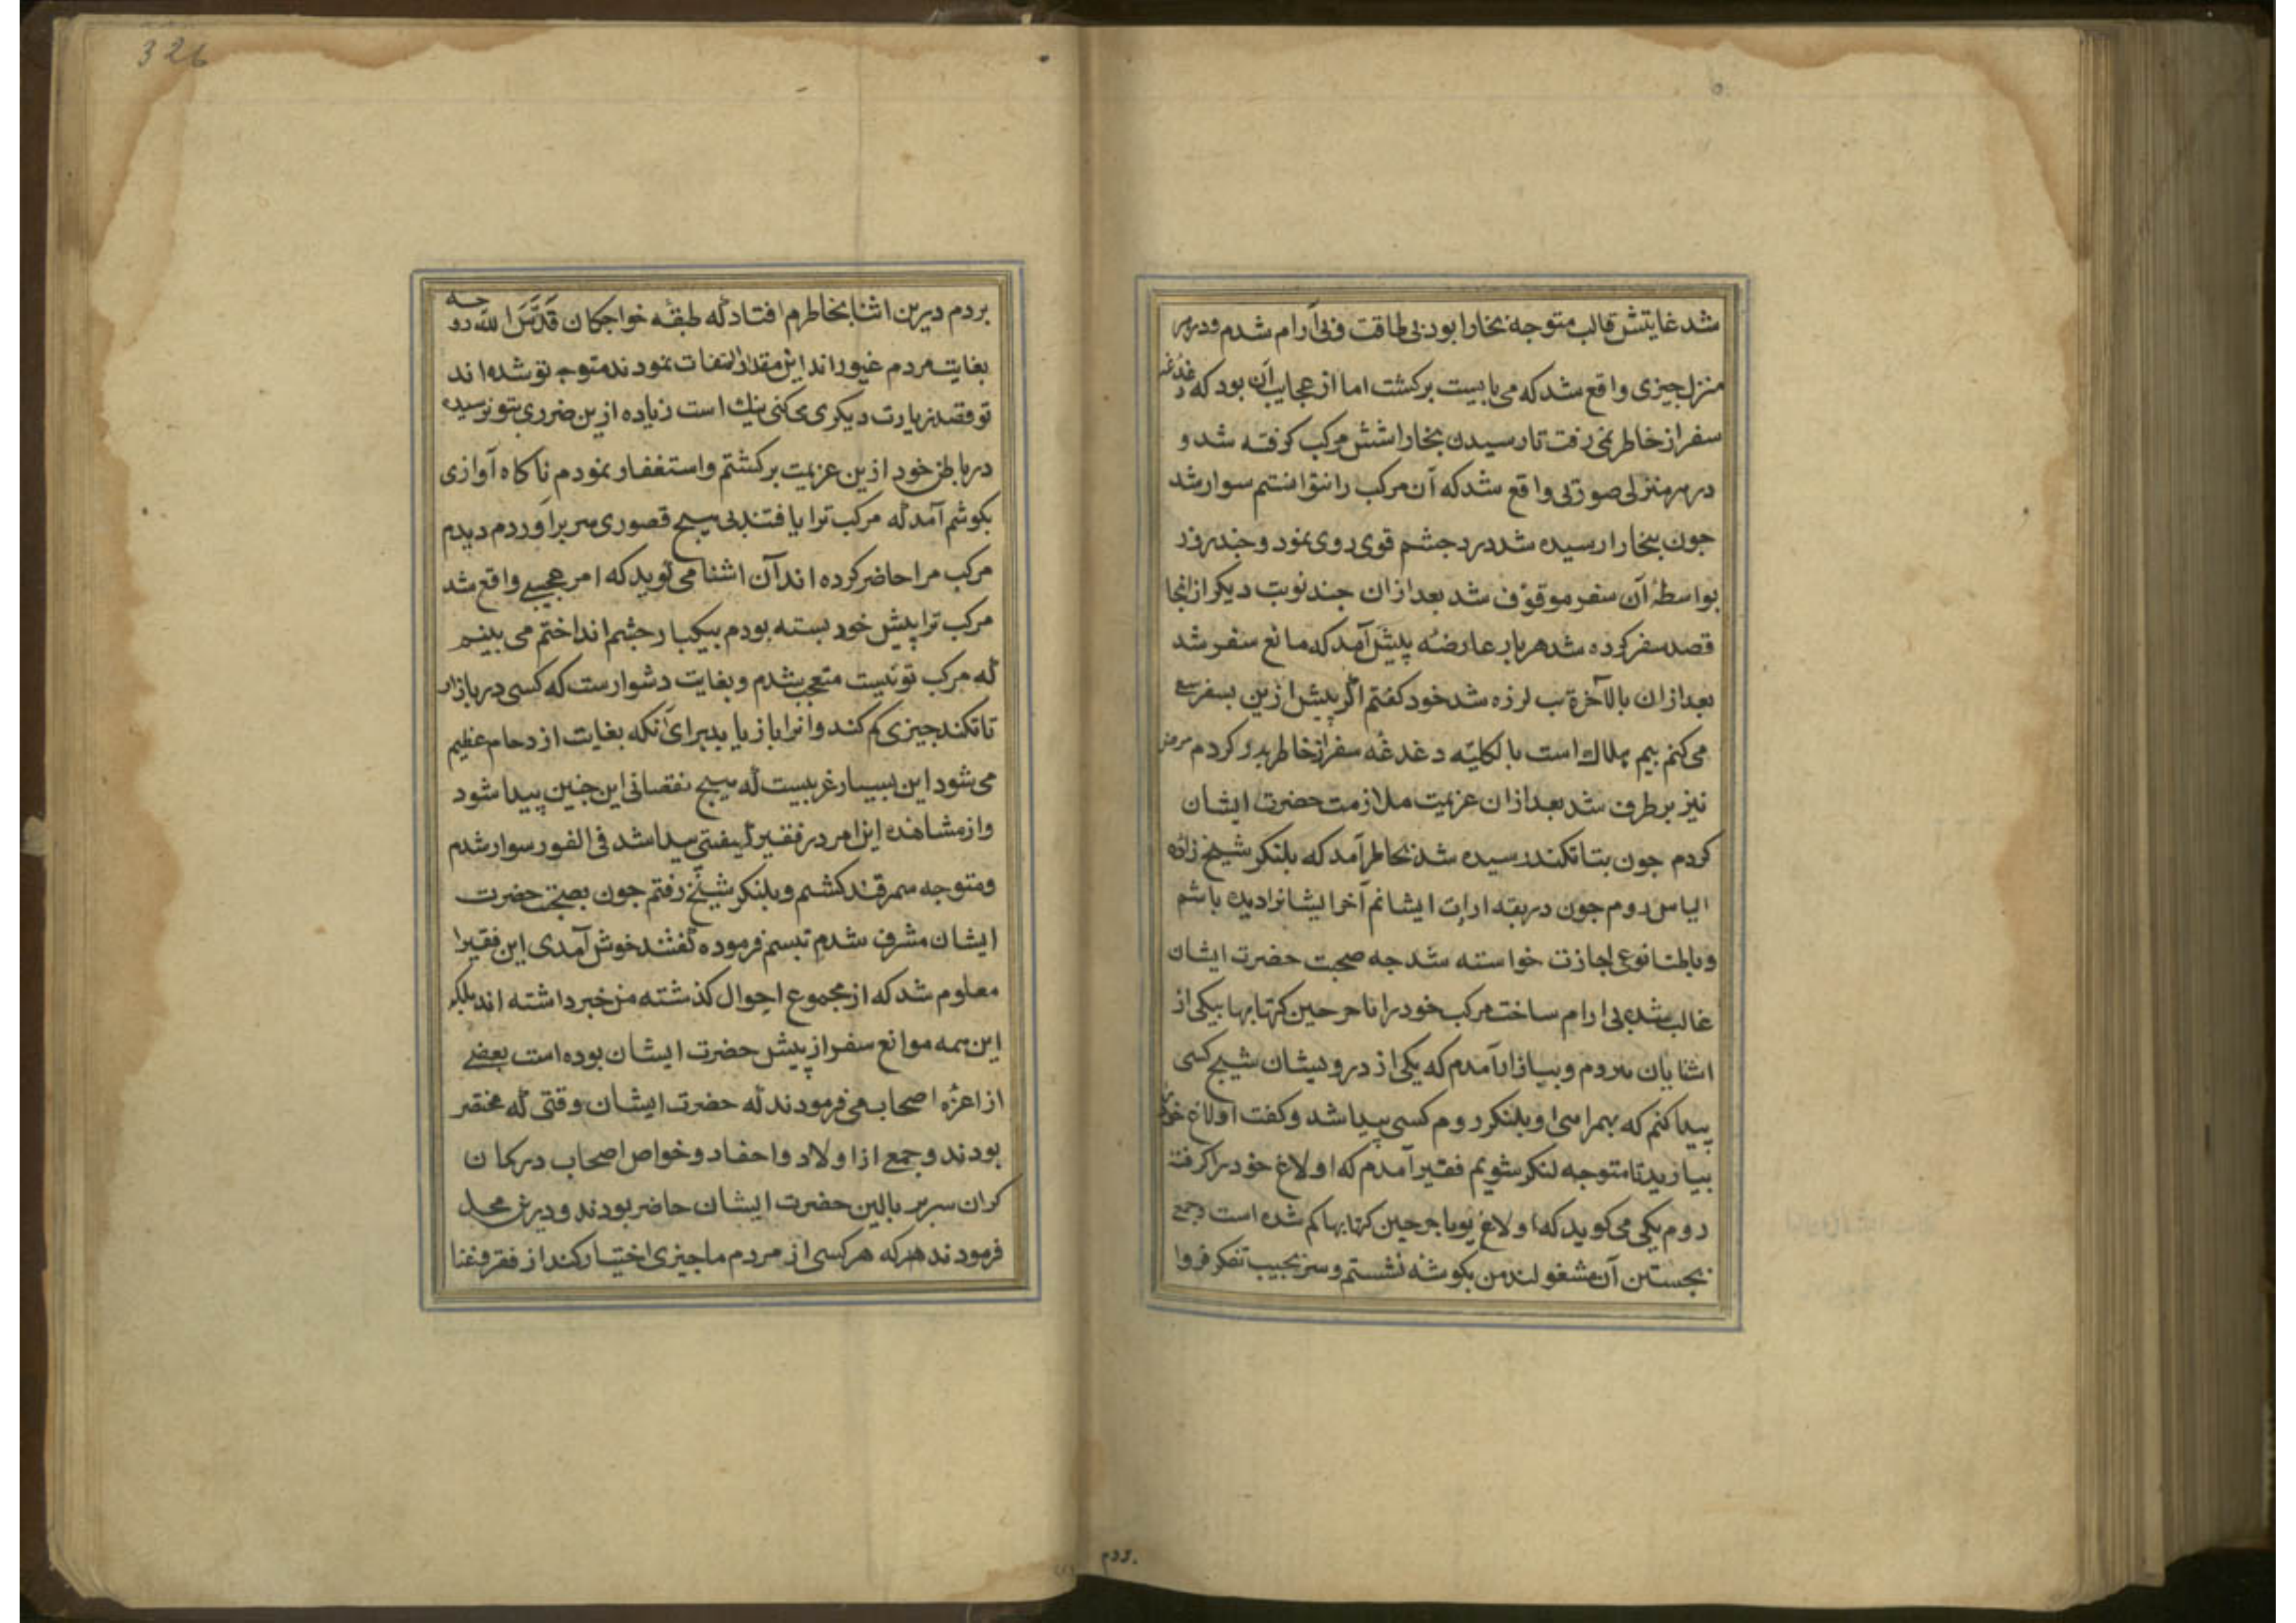 شد غایتش قالب متوجه بخارا بود بی طاقت و بی آرام شدم ودرهر
منزل چیزی واقع شد که می بایست برکشت اما از عجایب آن بود که دغدغه
سفر از خاطر نمی رفت تا رسیدن بخارا شش مرکب کرفته شد و
در هر منزلی صورتی واقع شد که آن مرکب را نتوانستم سوار شد
جون ببخارا رسیده شد درد جشم قوی روی نمود و جند روز
بواسطهٔ آن سفر موقوف شد بعد از ان جند نوبت دیکر از انجا
قصد سفر کرده شد هر بار عارضهٔ پیش آمد که مانع سفر شد
بعد از ان بالآخره تب لرزه شد خود کفتم اکر پیش ازین بسفر سعی
می کنم بیم هلاک است بالکلیّه دغدغهٔ سفر از خاطر بدر کردم مرض
نیز بر طرف شد بعد ازان عزیمت ملازمت حضرت ایشان
کردم جون بتاشکند رسیده شد بخاطر آمد که بلنکر شیخ زاده
الیاس روم جون در بقه ارادت ایشانم آخر ایشانرا دیده باشم
و باطنا نوعی اجازت خواسته شد جه صحبت حضرت ایشان
غالب شده بی ارام ساخت مرکب خود را با خرجین کتابها بیکی از
اشنایان سپردم و ببازار آمدم که یکی از درویشان شیخ کسی
پیدا کنم که بهمراهی او بلنکر روم کسی پیدا شد و کفت اولاغ خود
بیارید تا متوجه لنکر شویم فقیر آمدم که اولاغ خود را کرفته
روم یکی می کوید که اولاغ تو با خرجین کتابها کم شده است و جمعی
بجستن آن مشغولند من بکوشه نشستم و سر بجیب تفکر فروا
بردم
326
بردم درین اثنا بخاطرم افتاد که طبقهٔ خواجکان قَدَّسَ الله روحه
بغایت مردم غیور اند این مقدار التفات نمودند متوجه تو شده اند
تو قصد زیارت دیکری می کنی نیک است زیاده ازین ضرری بتو نرسیده
در باطن خود ازین عزیمت برکشتم و استغفار نمودم ناکاه آوازی
بکوشم آمد که مرکب ترا یافتند بی هیچ قصوری سر برآوردم دیدم
مرکب مرا حاضر کرده اند آن اشنا می کوید که امر عجیبی واقع شد
مرکب ترا پیش خود بسته بودم بیکبار جشم انداختم می بینم
که مرکب تو نیست متعجب شدم و بغایت دشوارست که کسی در بازار
تاشکند جیزی کم کند و انرا باز یابد برای آنکه بغایت ازدحام عظیم
می شود این بسیار غریبست که هیچ نقصانی این جنین پیدا شود
و از مشاهده این امر در فقیر کیفیتی پیدا شد فی الفور سوار شدم
و متوجه سمرقند کشتم و بلنکر شیخ نرفتم جون بصحبت حضرت
ایشان مشرف شدم تبسم فرموده کفتند خوش آمدی این فقیر را
معلوم شد که از مجموع احوال کذشته من خبر داشته اند بلکه
این همه موانع سفر از پیش حضرت ایشان بوده است بعضی
از اعزّه اصحاب می فرمودند که حضرت ایشان وقتی که محتضر
بودند و جمعی از اولاد و احفاد و خواص اصحاب در کمان
کران سر بر بالین حضرت ایشان حاضر بودند و درین محل
فرمودند هر که هر کسی از مردم ما جیزی اختیار کند از فقر و غنا